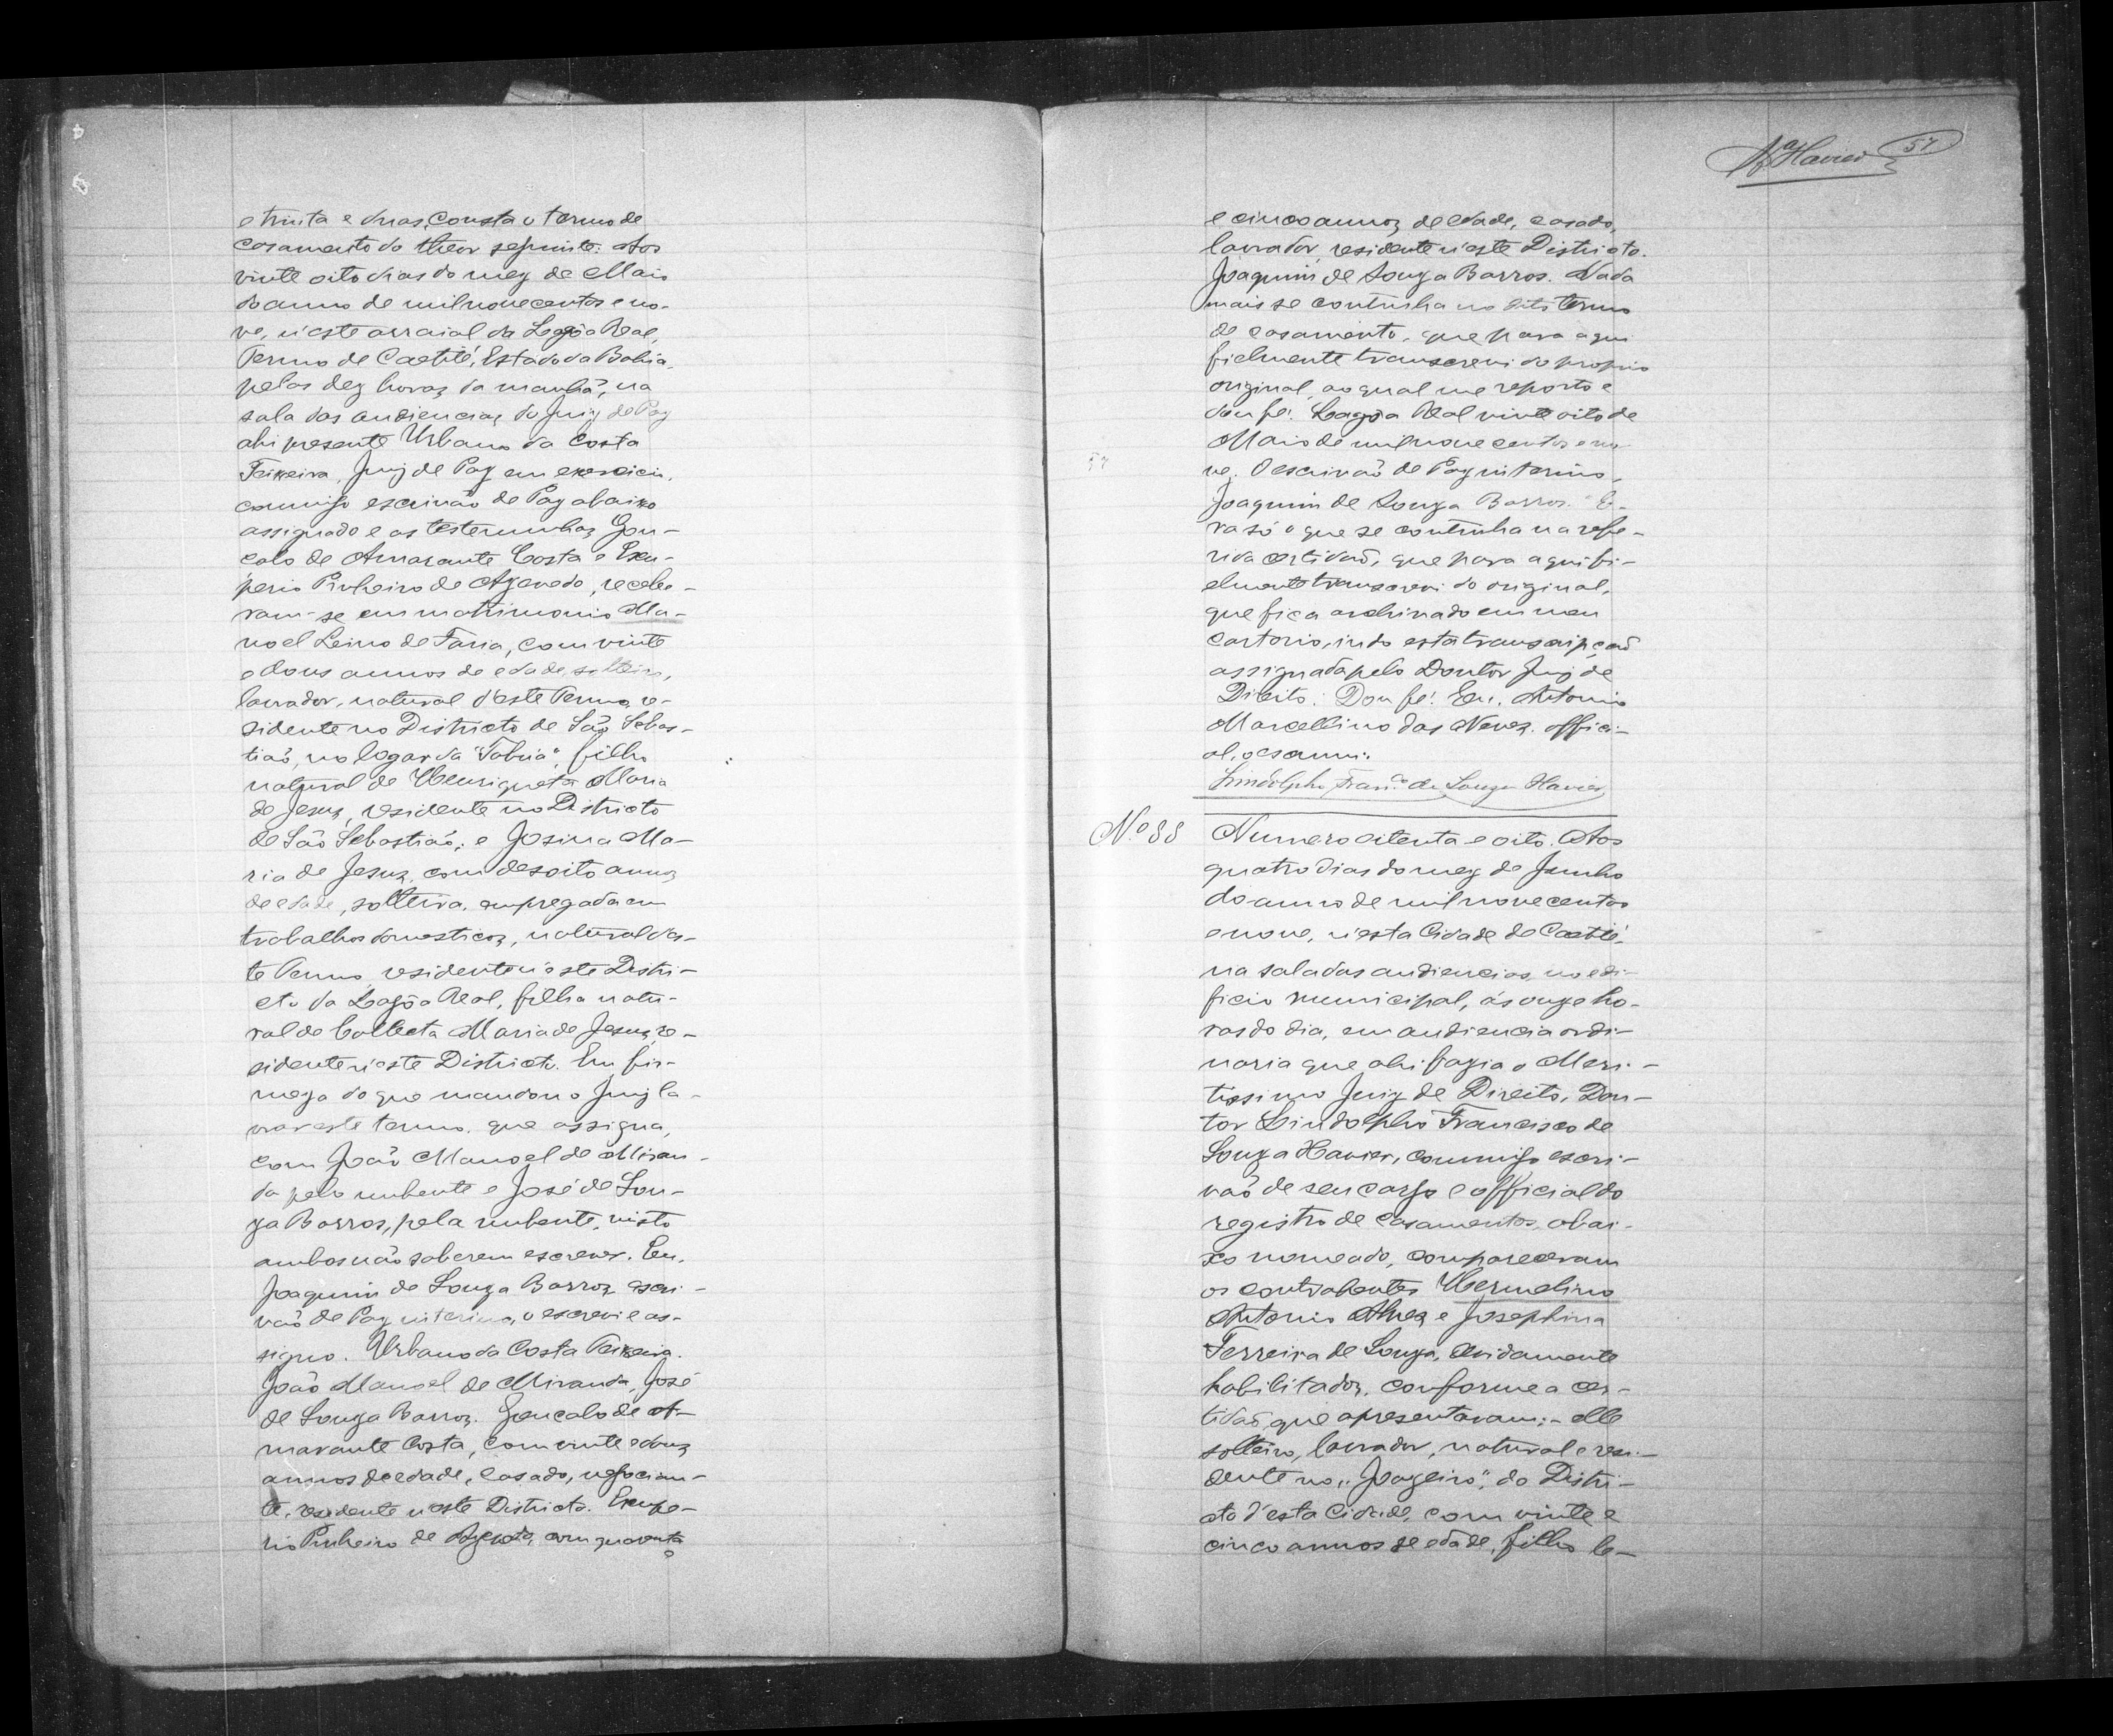 e trinta e duas, consta o termo de
casamento do theor seguinte: Aos
vinte oito dias do mez de Maio
do anno de mil novecentos e no-
ve, n'este arraial da Lagôa Real,
Termo de Caetité, Estado da Bahia,
pelas dez horas da manhã, na
sala das audiencias do Juiz de Paz
ahi presente Urbano da Costa
Teixeira, Juiz de Paz em exercicio,
commigo escrivão de Paz abaixo
assignado e as testemunhas Gon-
çalo de Amarante Costa e Exu-
perio Pinheiro de Azevedo, recebe-
ram-se em matrimonio Ma-
noel Leino de Faria, com vinte
e dous annos de edade, solteiro,
lavrador, natural d'este Termo, re-
sidente no Districto de São Sebas-
tião, no logar da "Tabúa", filho
natural de Henriqueta Maria
de Jesus, residente no Districto
de São Sebastião; e Josina Ma-
ria de Jesus, com desoito annos
de edade, solteira, empregada em
trabalhos domesticos, natural des-
te Termo, residente n'este Distri-
cto da Lagôa Real, filha natu-
ral de Collecta Maria de Jesus, re-
sidente n'este Districto. Em fir-
meza do que mandou o Juiz la-
vrar este termo, que assigna,
com João Manoel de Miran-
da pelo nubente e José de Sou-
za Barros, pela nubente, visto
ambos não saberem escrever. Eu,
Joaquim de Souza Barros, escri-
vão de Paz interino, o escrevi e as-
signo. Urbano da Costa Teixeira.
João Manoel de Miranda, José
de Souza Barros. Gonçalo de A-
marante Costa, com vinte e dous
annos de edade, casado, negocian-
te, residente n'este Districto. Exupe-
rio Pinheiro de Azevedo, com quarenta
57
e cinco annos de edade, casado,
lavrador, residente n'este Districto.
Joaquim de Souza Barros. Nada
mais se continha no dito termo
de casamento, que para aqui
fielmente transcrevi do proprio
original, ao qual me reporto e
dou fé. Lagôa Real vinte oito de
Maio de mil novecentos e no-
ve. O escrivão de Paz interino,
Joaquim de Souza Barros. E-
ra só o que se continha na refe-
rida certidão, que para aqui fi-
elmente transcrevi do original,
que fica archivado em meu
cartorio, indo esta transcripção
assignada pelo Doutor Juiz de
Direito: Dou fé. Eu, Antonio
Marcellino das Neves, offici-
al, o escrevi.
Lindolpho Fran.co de Souza Xavier
Nº 88 Numero oitenta e oito. Aos
quatro dias do mez de Junho
do anno de mil novecentos
e nove, n'esta Cidade de Caetité,
na sala das audiencias, no edi-
ficio municipal, ás onze ho-
ras do dia, em audiencia ordi-
naria que ahi fazia o Meri-
tissimo Juiz de Direito, Dou-
tor Lindolpho Francisco de
Souza Xavier, commigo escri-
vão de seu cargo e official do
registro de casamentos, abai-
xo nomeado, compareceram
os contrahentes Hermelino
Antonio Alves e Josephina
Ferreira de Souza, devidamente
habilitados, conforme a cer-
tidão que apresentaram; - elle
solteiro, lavrador, natural e resi-
dente no "Joazeiro", do Distri-
cto d'esta Cidade, com vinte e
cinco annos de edade, filho le-